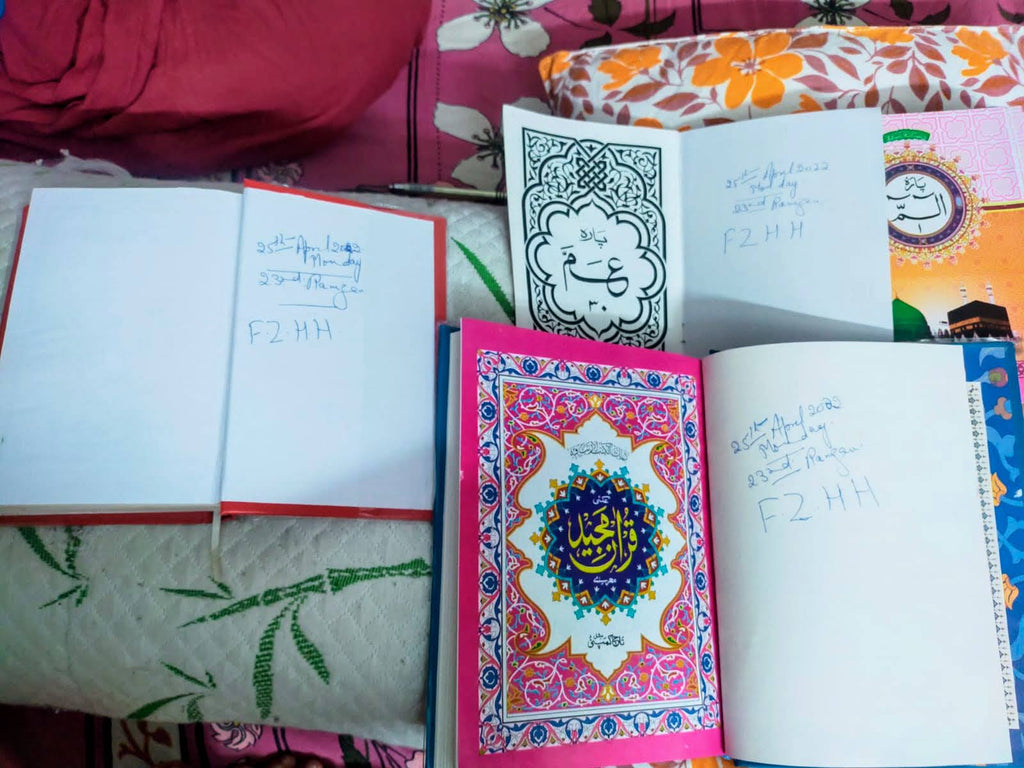 25th April 2022
Monday
23rd Ramzan
F.Z.HH
پارہ
عَمَّ
۳۰
25th April 2022
Monday
23rd Ramzan
FZHH
پارہ
الٓمّٓ
۱
قرآن مجید
تاج کمپنی
25th April 2022
Monday
23rd Ramzan
F.Z.HH